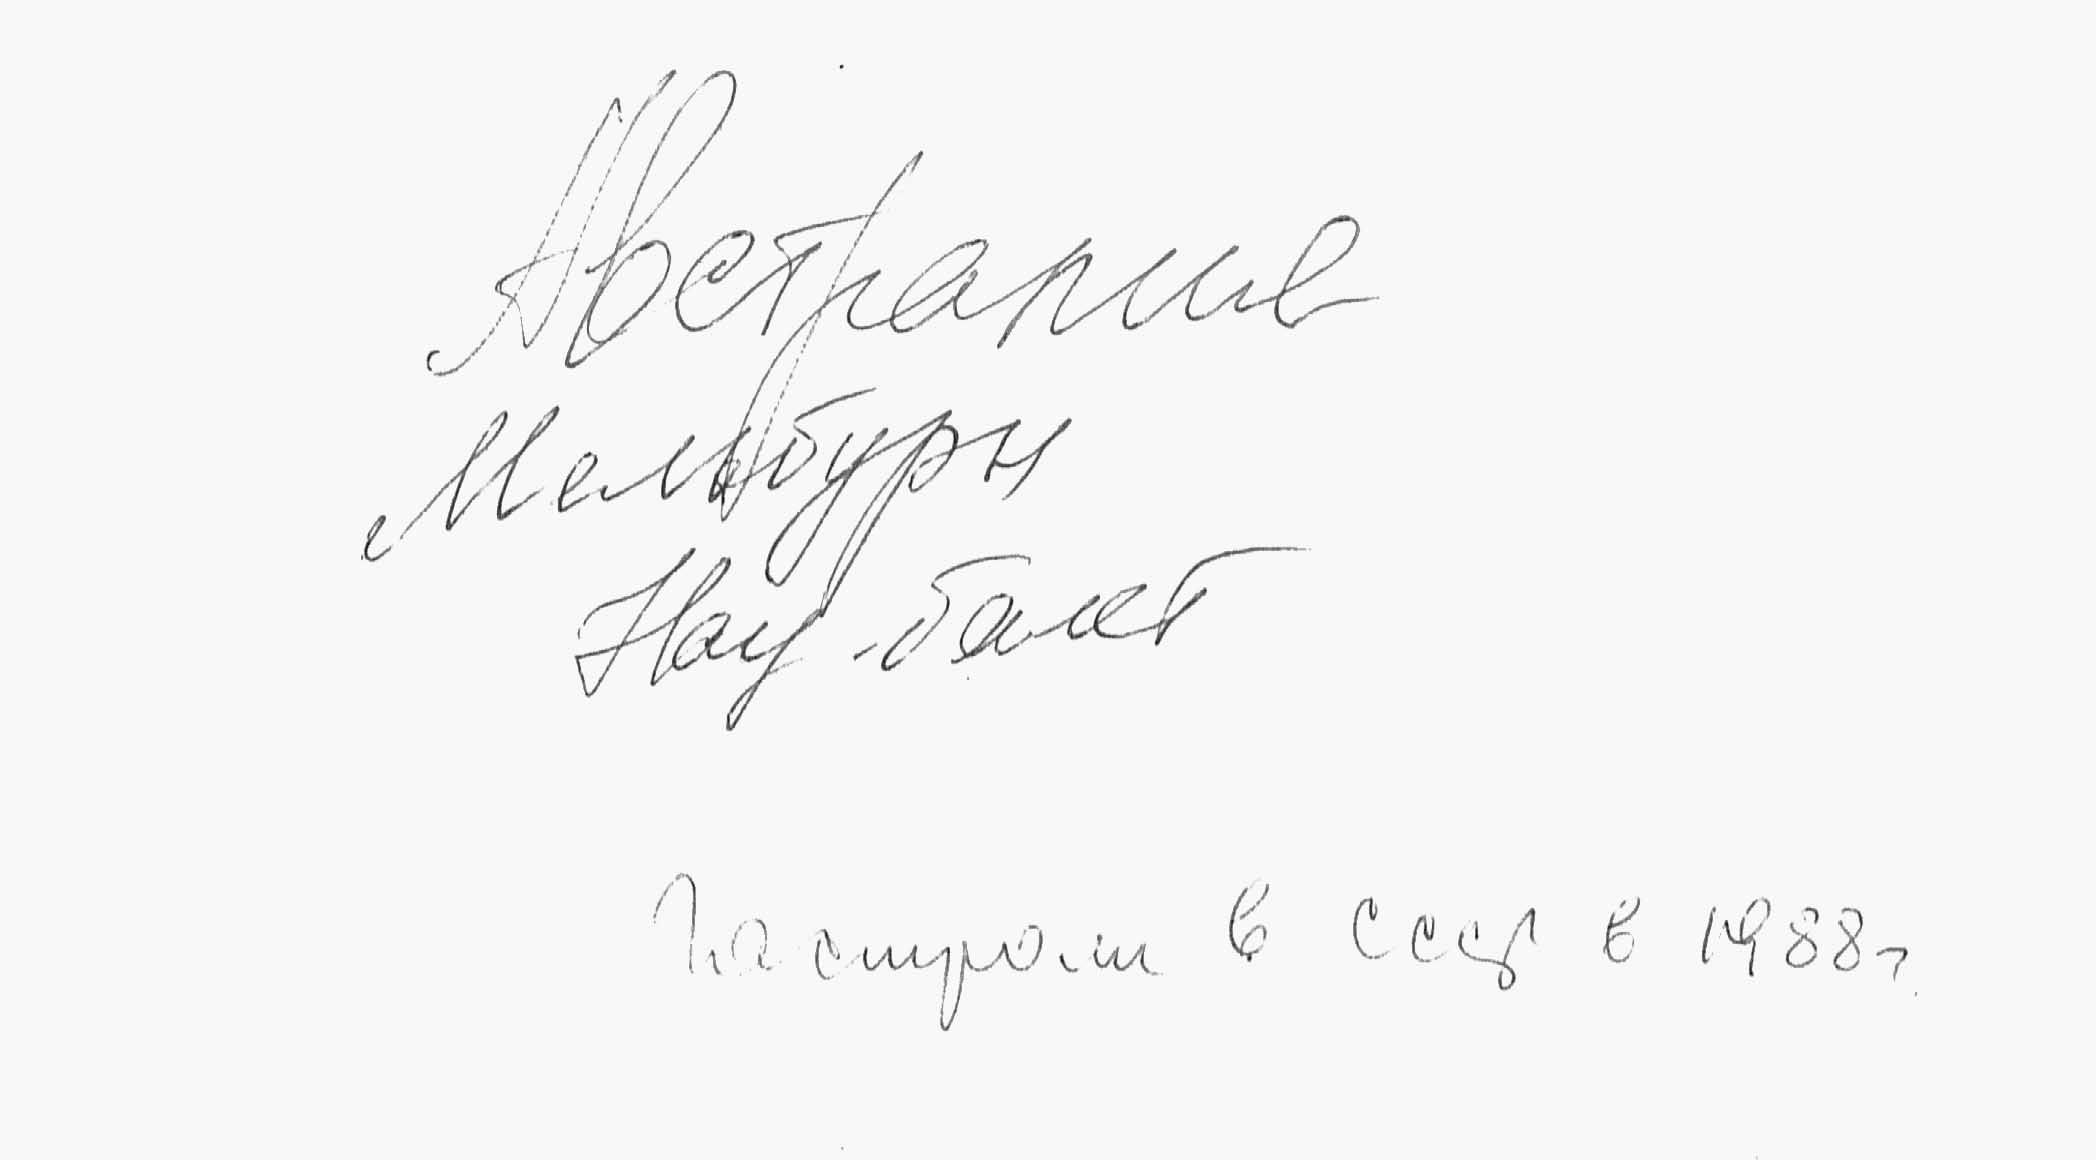 Австралия
Мельбурн
Нац-балет
Гастроли в СССР в 1988г.